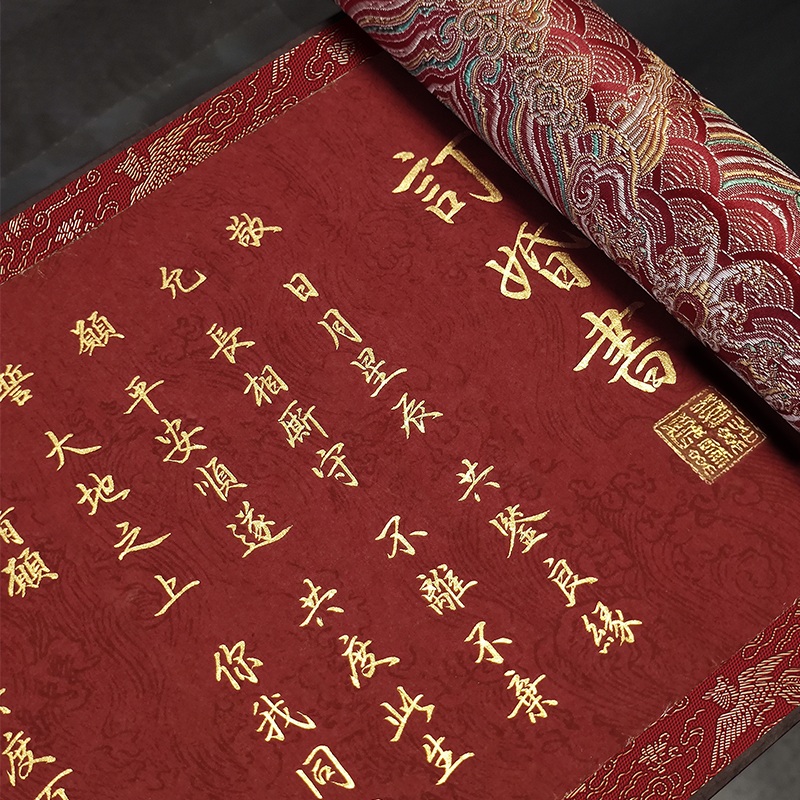 訂婚書
敬日月星辰 共鑒良緣
允長相厮守 不離不棄
願平安順遂 共度此生
誓大地之上 你我同
願 度